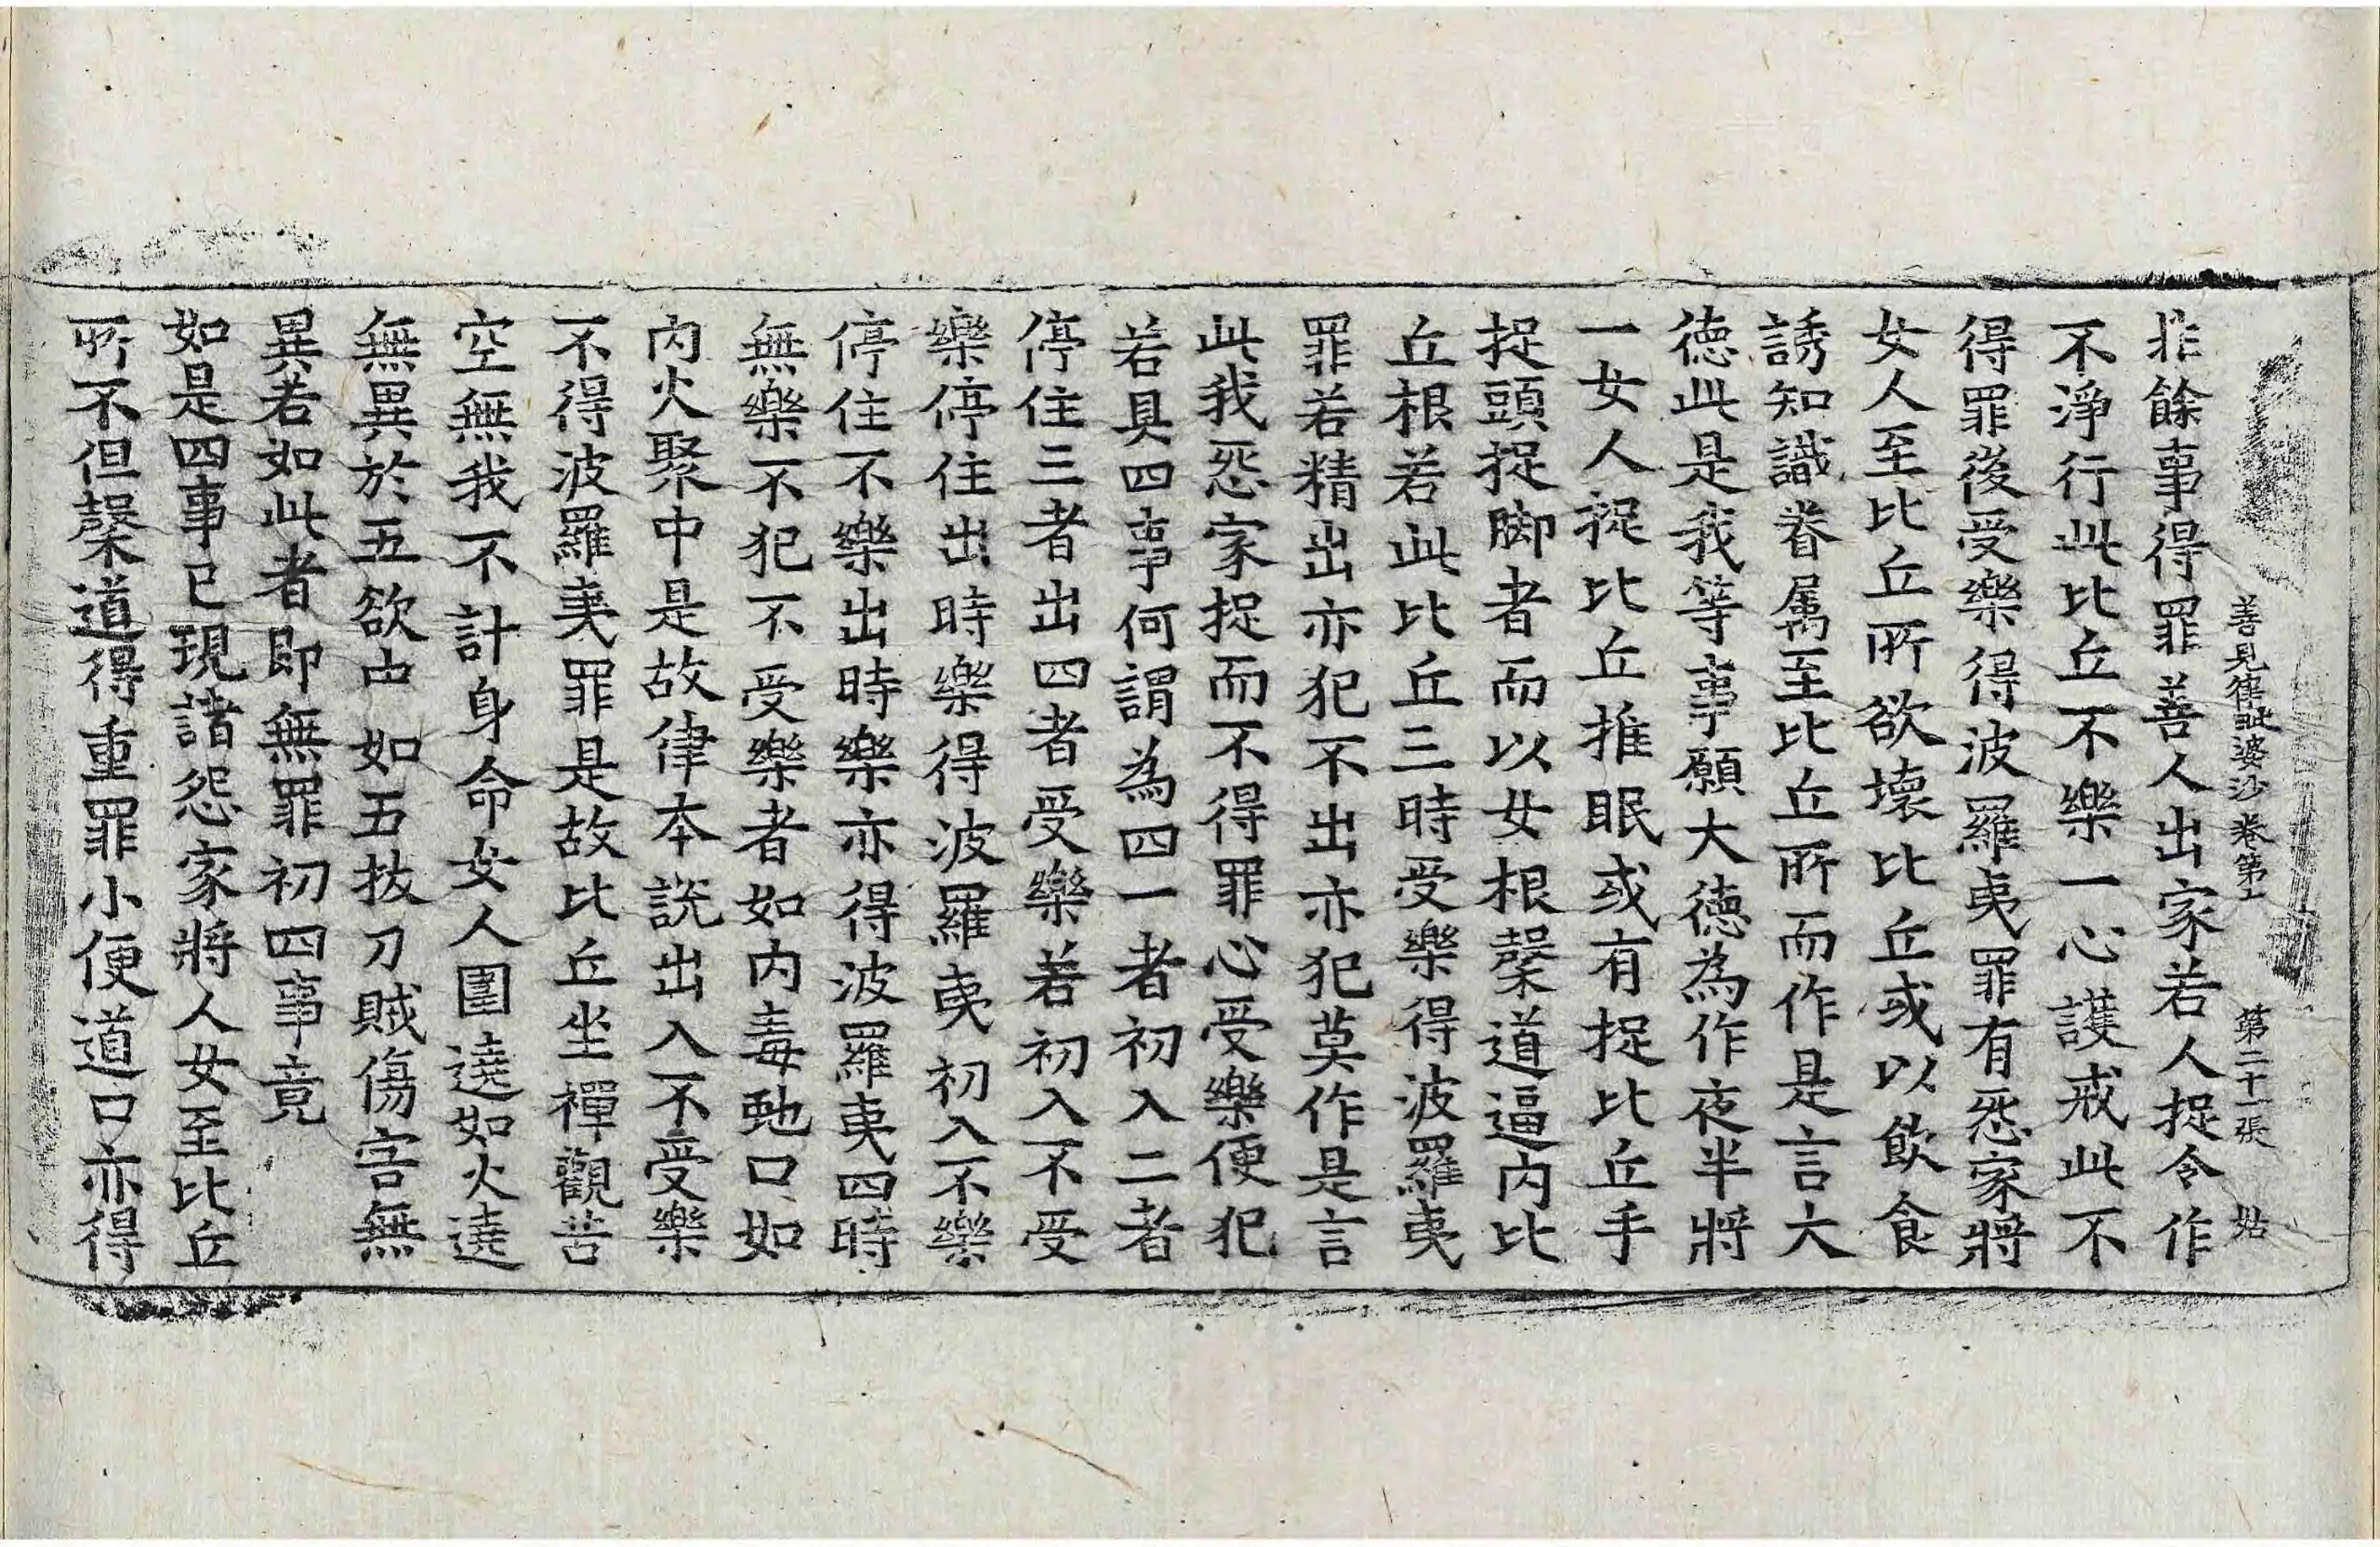 善見律毗婆沙卷第七 第二十一張 姑
非餘事得罪善人出家若人捉令作
不淨行此比丘不樂一心護戒此不
得罪後受樂得波羅夷罪有怨家將
女人至比丘所欲壞比丘或以飲食
誘知識眷属至比丘所而作是言大
德此是我等事願大德為作夜半將
一女人捉比丘推眠或有捉比丘手
捉頭捉脚者而以女根㲉道逼內比
丘根若此比丘三時受樂得波羅夷
罪若精出亦犯不出亦犯莫作是言
此我怨家捉而不得罪心受樂便犯
若具四事何謂為四一者初入二者
停住三者出四者受樂若初入不受
樂停住出時樂得波羅夷初入不樂
停住不樂出時樂亦得波羅夷四時
無樂不犯不受樂者如內毒虵口如
內火聚中是故律本說出入不受樂
不得波羅夷罪是故比丘坐禪觀苦
空無我不計身命女人圍遶如火遶
無異於五欲中如五拔刀賊傷害無
異若如此者即無罪初四事竟
如是四事已現諸怨家將人女至比丘
所不但㲉道得重罪小便道口亦得